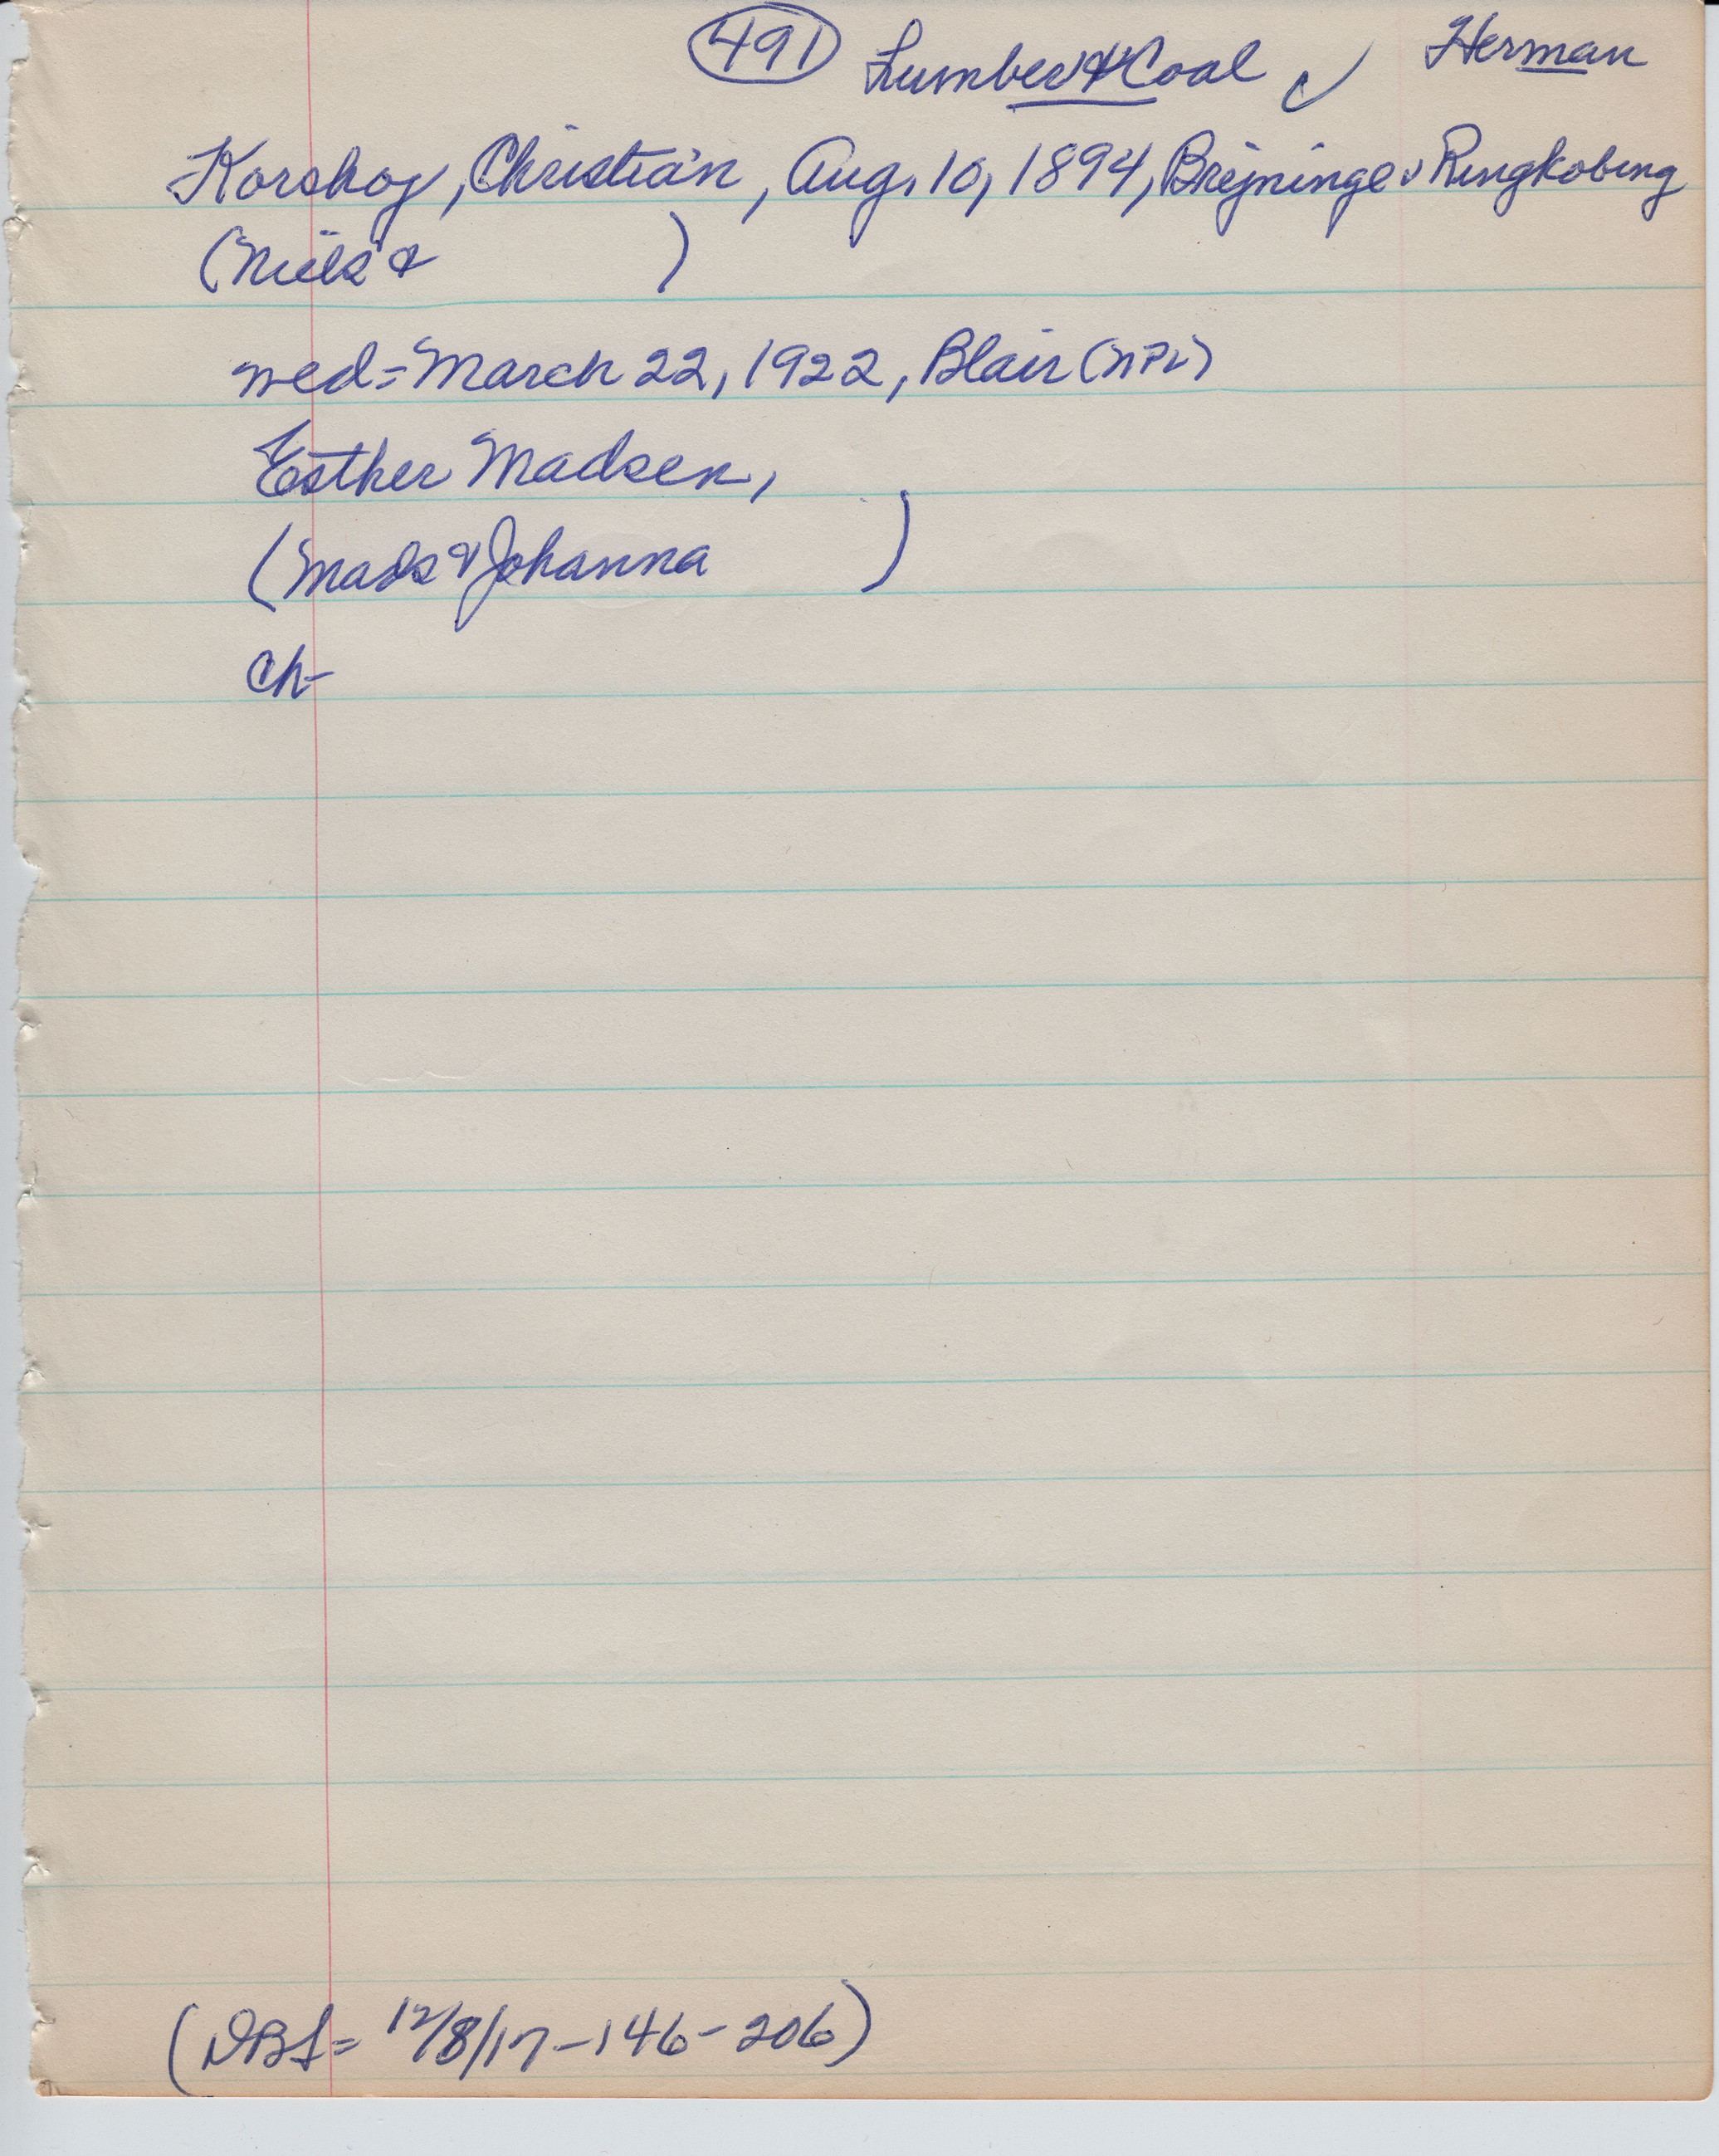 491 Lumber & Coal ✓ Herman
Korshoj, Christian, Aug. 10, 1894, Brejninge v Ringkobing
(Niels & )
wed = March 22, 1922, Blair (NPL)
Esther Madsen,
(Mads & Johanna )
Ch-
(DBS = 12/8/17 - 146 - 206)